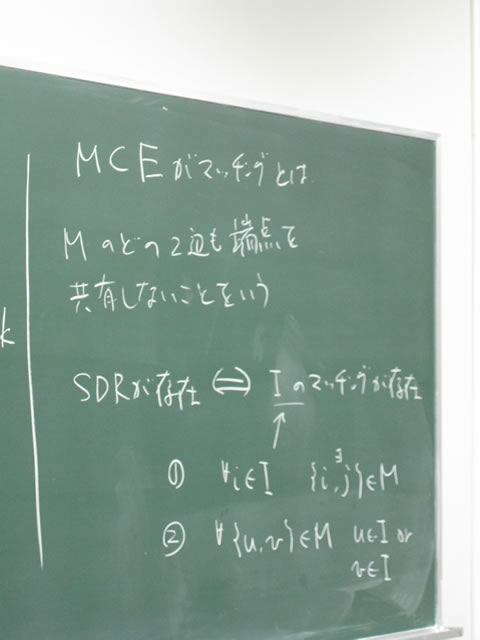 k
M⊂Eがマッチングとは
Mのどの2辺も端点を
共有しないことをいう
SDRが存在 ⇔ Iのマッチングが存在
↑
① ∀i∈I {i,∃j}∈M
② ∀{u,v}∈M u∈I or
v∈I